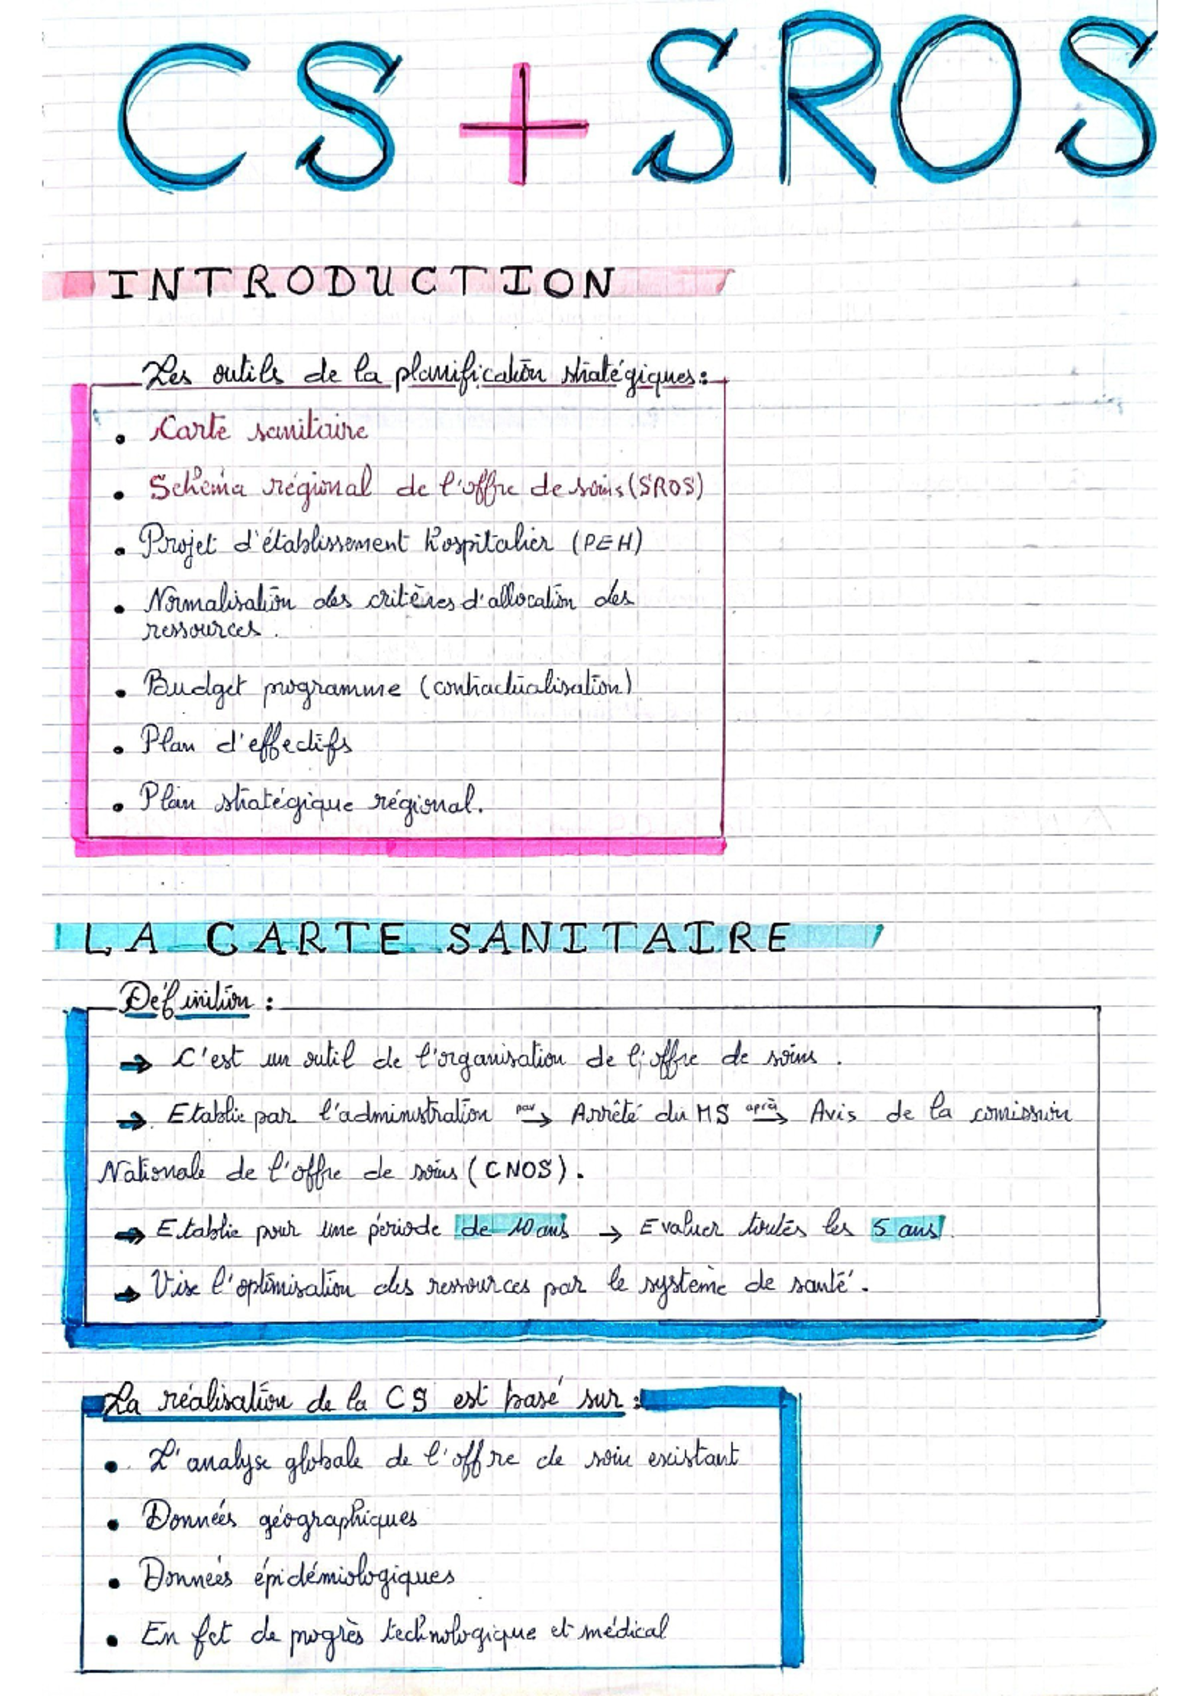 CS + SROS
INTRODUCTION
Les outils de la planification stratégiques :
• Carte sanitaire
• Schéma régional de l'offre de soins (SROS)
• Projet d'établissement hospitalier (PEH)
• Normalisation des critères d'allocation des
ressources.
• Budget programme (contractualisation)
• Plan d'effectifs
• Plan stratégique régional.
LA CARTE SANITAIRE
Définition :
→ C'est un outil de l'organisation de l'offre de soins.
→ Etablie par l'administration par → Arrêté du MS après → Avis de la comission
Nationale de l'offre de soins (CNOS).
→ Etablie pour une période de 10 ans → Evaluer toutes les 5 ans.
→ Vise l'optimisation des ressources par le système de santé.
La réalisation de la CS est basé sur :
• L'analyse globale de l'offre de soin existant
• Données géographiques
• Données épidémiologiques
• En fct de progrès technologique et médical